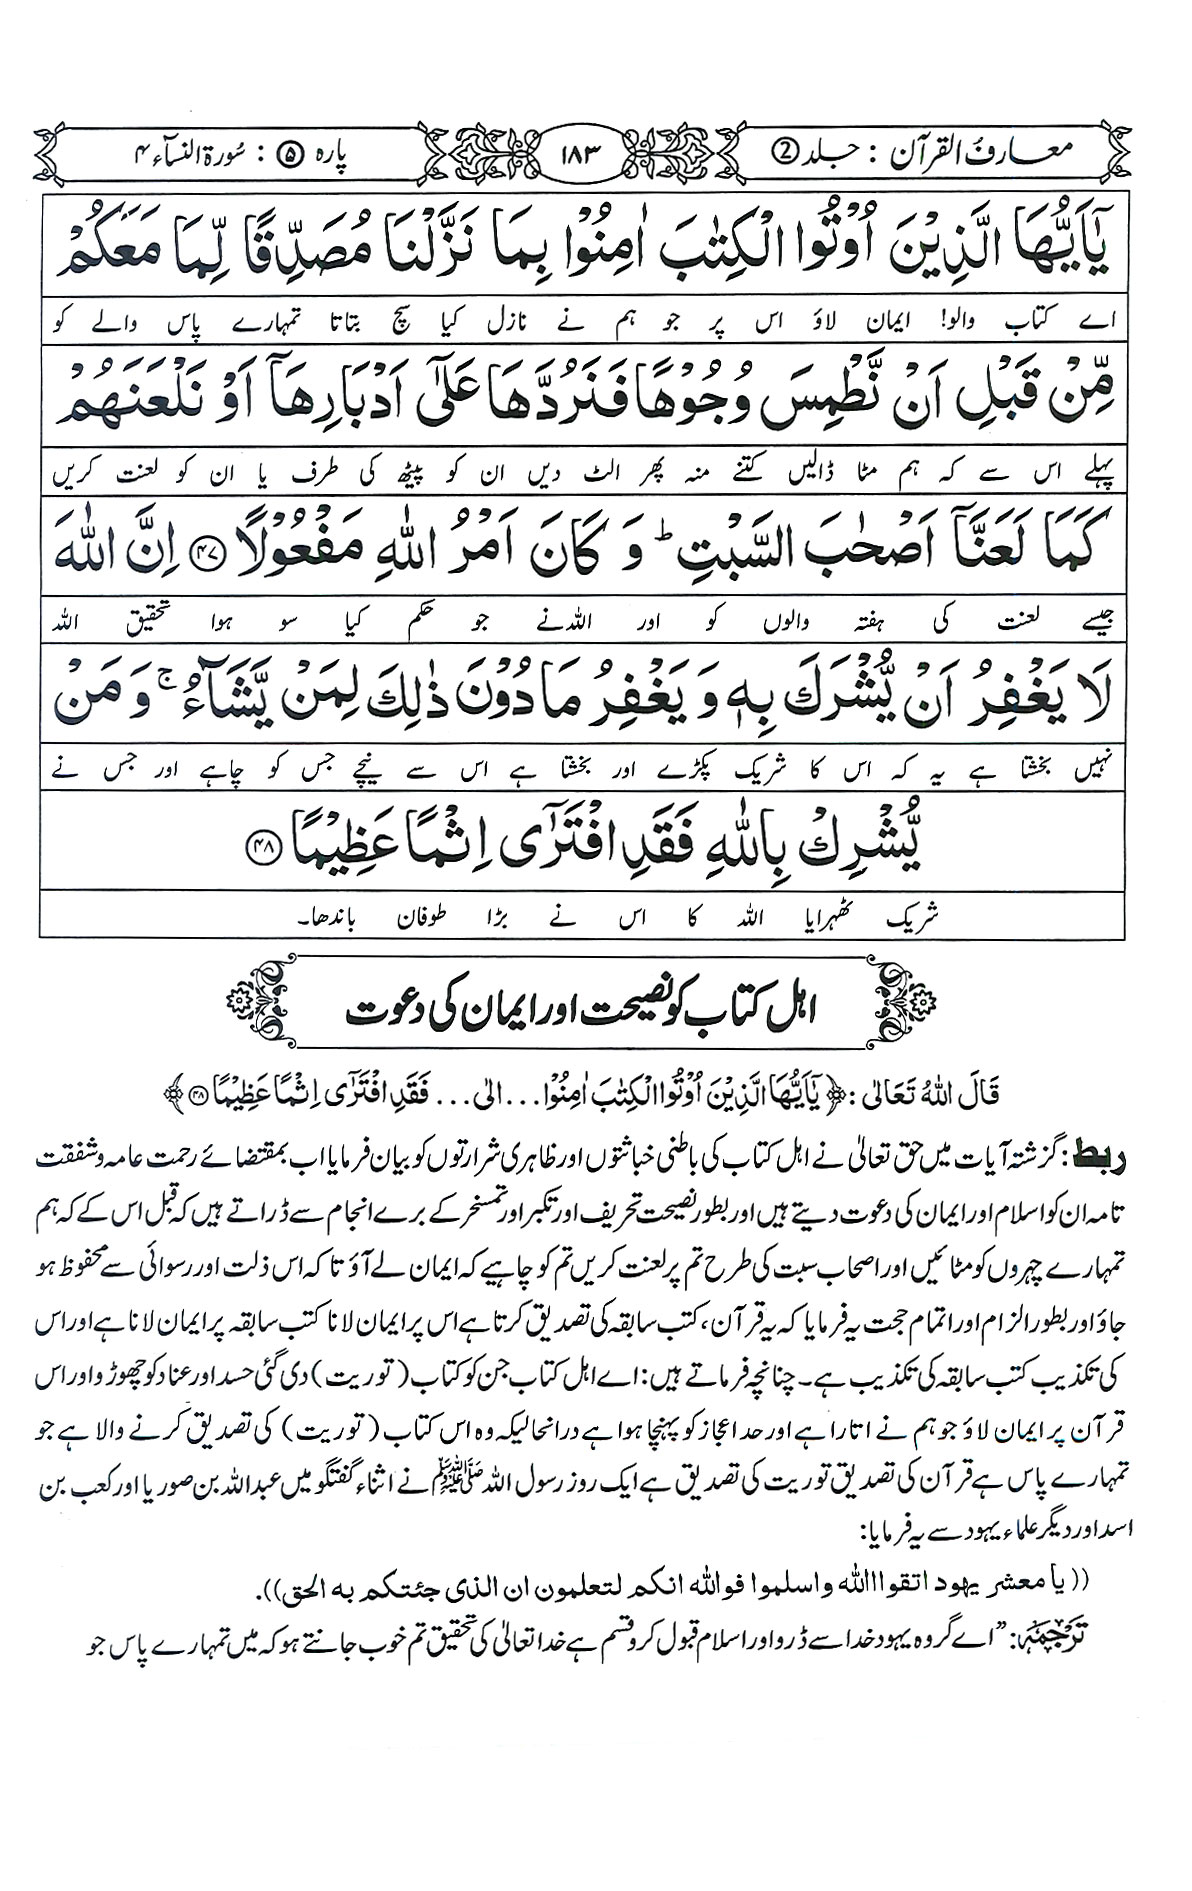 معارف القرآن : جلد ② ۱۸۳ پارہ ⑤ : سُورۃ النسآء ۴
يٰٓاَيُّهَا الَّذِيْنَ اُوْتُوا الْكِتٰبَ اٰمِنُوْا بِمَا نَزَّلْنَا مُصَدِّقًا لِّمَا مَعَكُمْ
اے کتاب والو! ایمان لاؤ اس پر جو ہم نے نازل کیا سچ بتاتا تمہارے پاس والے کو
مِّنْ قَبْلِ اَنْ نَّطْمِسَ وُجُوْهًا فَنَرُدَّهَا عَلٰٓى اَدْبَارِهَآ اَوْ نَلْعَنَهُمْ
پہلے اس سے کہ ہم مٹا ڈالیں کتنے منہ پھر الٹ دیں ان کو پیٹھ کی طرف یا ان کو لعنت کریں
كَمَا لَعَنَّآ اَصْحٰبَ السَّبْتِ ؕ وَ كَانَ اَمْرُ اللّٰهِ مَفْعُوْلًا ۴۷ اِنَّ اللّٰهَ
جیسے لعنت کی ہفتہ والوں کو اور اللہ نے جو حکم کیا سو ہوا تحقیق اللہ
لَا يَغْفِرُ اَنْ يُّشْرَكَ بِهٖ وَ يَغْفِرُ مَا دُوْنَ ذٰلِكَ لِمَنْ يَّشَآءُ ۚ وَ مَنْ
نہیں بخشتا ہے یہ کہ اس کا شریک پکڑے اور بخشتا ہے اس سے نیچے جس کو چاہے اور جس نے
يُّشْرِكْ بِاللّٰهِ فَقَدِ افْتَرٰٓى اِثْمًا عَظِيْمًا ۴۸
شریک ٹھہرایا اللہ کا اس نے بڑا طوفان باندھا۔
اہل کتاب کو نصیحت اور ایمان کی دعوت
قَالَ اللّٰهُ تَعَالٰى : ﴿يٰٓاَيُّهَا الَّذِيْنَ اُوْتُوا الْكِتٰبَ اٰمِنُوْا... الى... فَقَدِ افْتَرٰٓى اِثْمًا عَظِيْمًا ۴۸﴾
ربط: گزشتہ آیات میں حق تعالیٰ نے اہل کتاب کی باطنی خباثتوں اور ظاہری شرارتوں کو بیان فرمایا اب بمقتضائے رحمت عامہ و شفقت
تامہ ان کو اسلام اور ایمان کی دعوت دیتے ہیں اور بطور نصیحت تحریف اور تکبر اور تمسخر کے برے انجام سے ڈراتے ہیں کہ قبل اس کے کہ ہم
تمہارے چہروں کو مٹائیں اور اصحاب سبت کی طرح تم پر لعنت کریں تم کو چاہیے کہ ایمان لے آؤ تا کہ اس ذلت اور رسوائی سے محفوظ ہو
جاؤ اور بطور الزام اور اتمام حجت یہ فرمایا کہ یہ قرآن، کتب سابقہ کی تصدیق کرتا ہے اس پر ایمان لانا کتب سابقہ پر ایمان لانا ہے اور اس
کی تکذیب کتب سابقہ کی تکذیب ہے۔ چنانچہ فرماتے ہیں: اے اہل کتاب جن کو کتاب (توریت) دی گئی حسد اور عناد کو چھوڑو اور اس
قرآن پر ایمان لاؤ جو ہم نے اتارا ہے اور حد اعجاز کو پہنچا ہوا ہے درانحالیکہ وہ اس کتاب (توریت) کی تصدیق کرنے والا ہے جو
تمہارے پاس ہے قرآن کی تصدیق توریت کی تصدیق ہے ایک روز رسول اللہ ﷺ نے اثناء گفتگو میں عبداللہ بن صوریا اور کعب بن
اسد اور دیگر علماء یہود سے یہ فرمایا:
((یا معشر یهود اتقوا الله واسلموا فوالله انکم لتعلمون ان الذی جئتکم به الحق)).
تَرجَمَہ: ”اے گروہ یہود خدا سے ڈرو اور اسلام قبول کرو قسم ہے خدا تعالیٰ کی تحقیق تم خوب جانتے ہو کہ میں تمہارے پاس جو